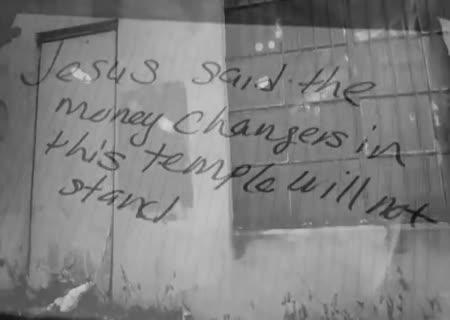 Jesus said the
money changers in
this temple will not
stand